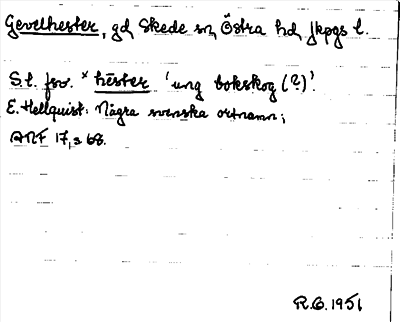 Gevelhester, gd Skede sn, Östra hd, Jkpgs l.
S.l. fsv. *hēster 'ung bokskog (?)'.
E. Hellquist: Några svenska ortnamn;
ANF 17, s 68.
R.G. 1951